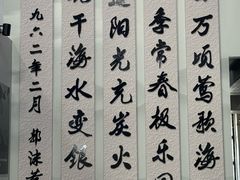 万顷莺歌海
季常春极乐园
阳光充炭火
干海水变银
九六二年二月 郭沫若